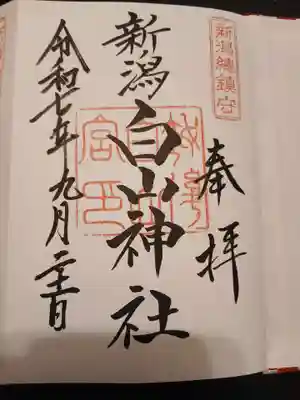 新潟總鎮守
奉拝
新潟
白山神社
令和七年九月二十一日